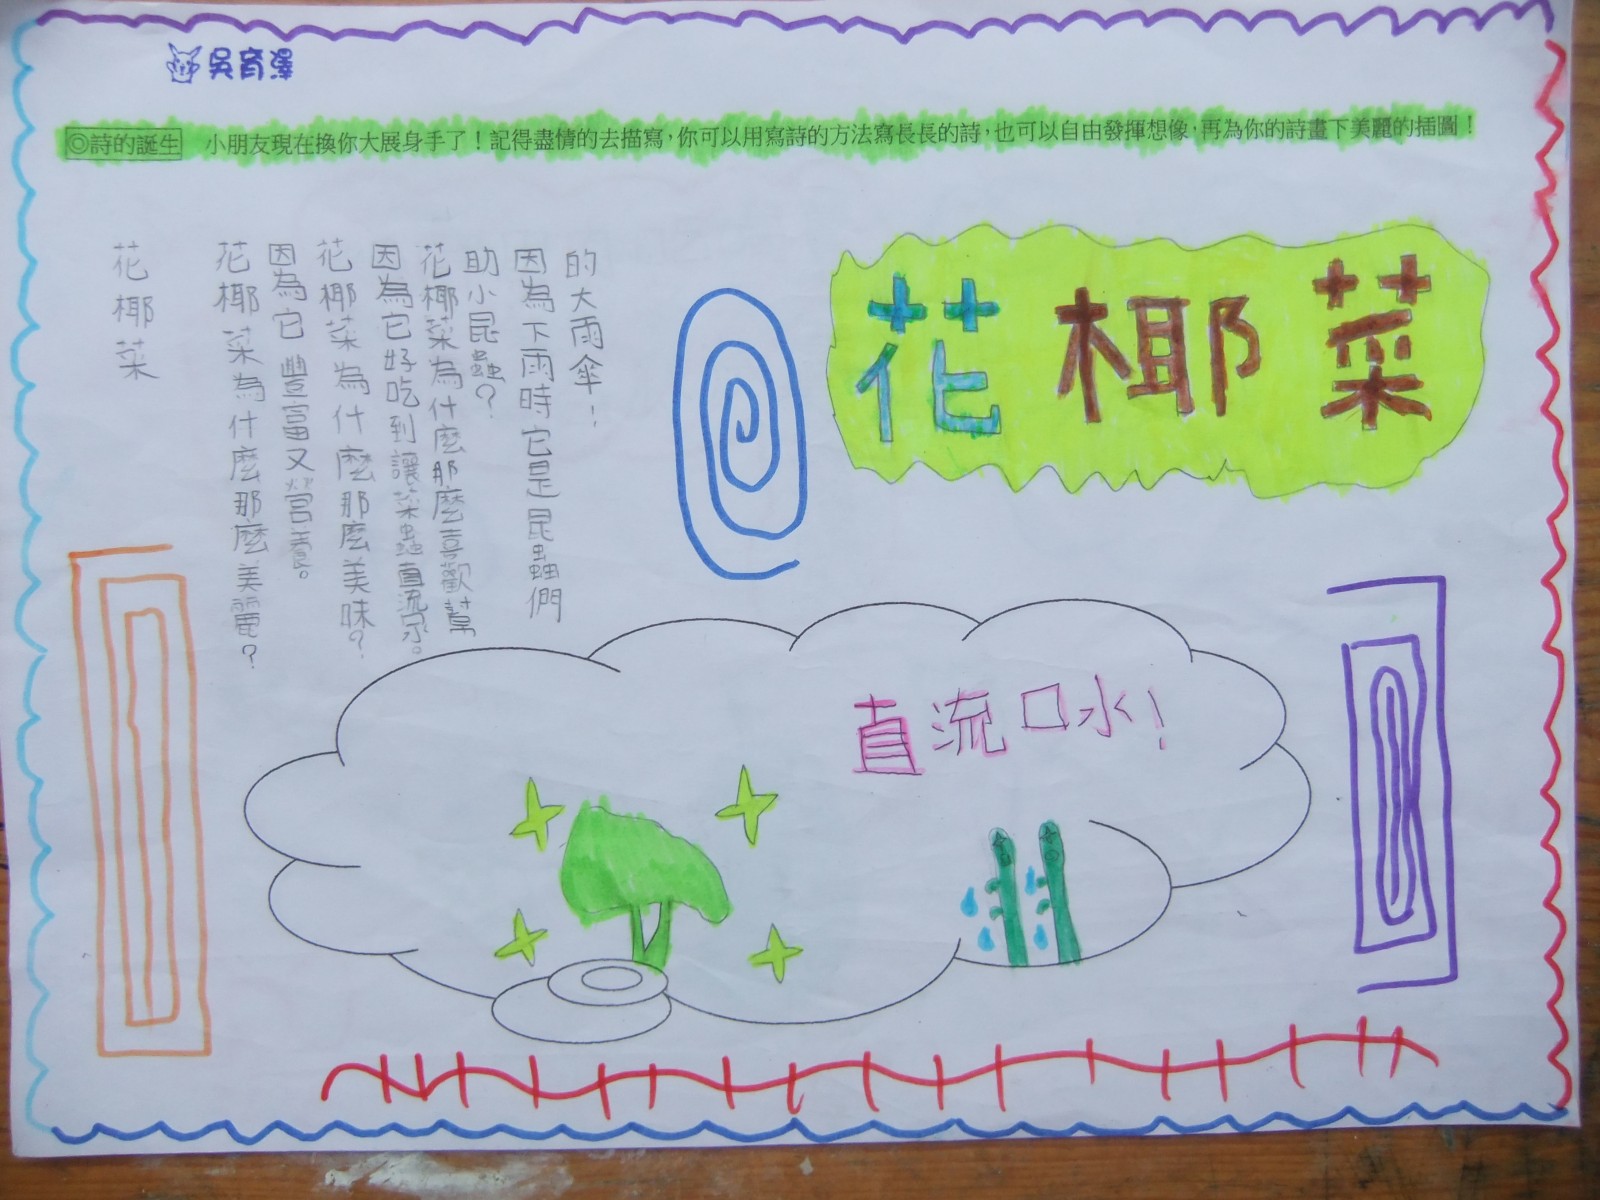 吳育澤
◎詩的誕生 小朋友現在換你大展身手了！記得盡情的去描寫，你可以用寫詩的方法寫長長的詩，也可以自由發揮想像，再為你的詩畫下美麗的插圖！
花椰菜
花椰菜
花椰菜為什麼那麼美麗？
因為它豐富又營養。
花椰菜為什麼那麼美味？
因為它好吃到讓菜蟲直流水。
花椰菜為什麼那麼喜歡幫
助小昆蟲？
因為下雨時它是昆蟲們
的大雨傘！
直流口水！